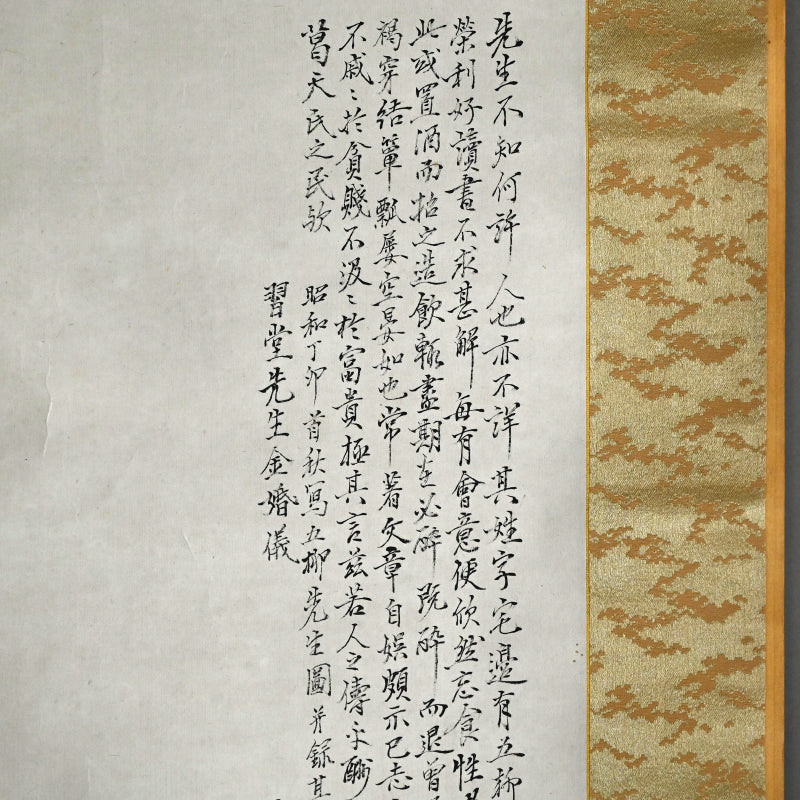 先生不知何許人也亦不詳其姓字宅邊有五柳
榮利好讀書不求甚解每有會意便欣然忘食性
此或置酒而招之造飲輒盡期在必醉既醉而退曾
褐穿結簞瓢屡空晏如也常著文章自娯頗示己志
不戚〻於貧賤不汲〻於富貴極其言玆若人之儔乎酬
葛天氏之民歟
昭和丁卯首秋寫五柳先生圖并録其
習堂先生金婚儀